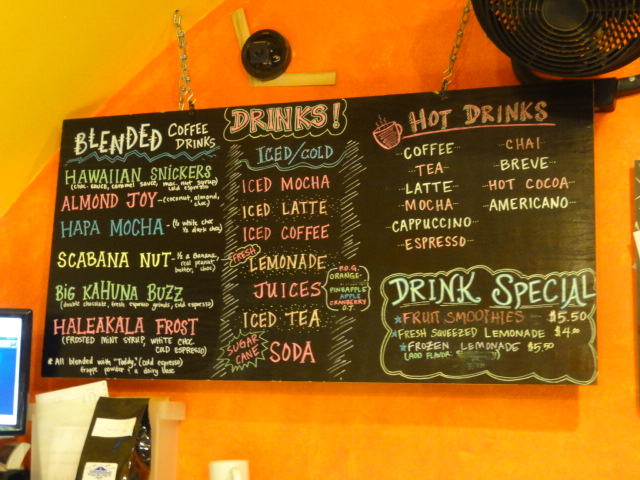 BLENDED COFFEE DRINKS
HAWAIIAN SNICKERS
(choc. sauce, caramel sauce, mac. nut syrup)
cold espresso
ALMOND JOY -(coconut, almond, choc)
HAPA MOCHA -(½ white choc
½ dark choc)
SCABANA NUT -½ a banana,
real peanut
butter, choc)
BIG KAHUNA BUZZ
(double chocolate, fresh espresso grinds, cold espresso)
HALEAKALA FROST
(FROSTED MINT SYRUP, WHITE CHOC
COLD ESPRESSO)
* All blended with "Toddy," (cold espresso)
frappe powder & a dairy base
DRINKS!
ICED/COLD
ICED MOCHA
ICED LATTE
ICED COFFEE
FRESH LEMONADE
JUICES
P.O.G.
ORANGE
PINEAPPLE
APPLE
CRANBERRY
O.J.
ICED TEA
SUGAR CANE SODA
HOT DRINKS
COFFEE
TEA
LATTE
MOCHA
CAPPUCCINO
ESPRESSO
CHAI
BREVE
HOT COCOA
AMERICANO
DRINK SPECIAL
FRUIT SMOOTHIES $5.50
FRESH SQUEEZED LEMONADE $4.00
FROZEN LEMONADE $5.50
(ADD FLAVOR: